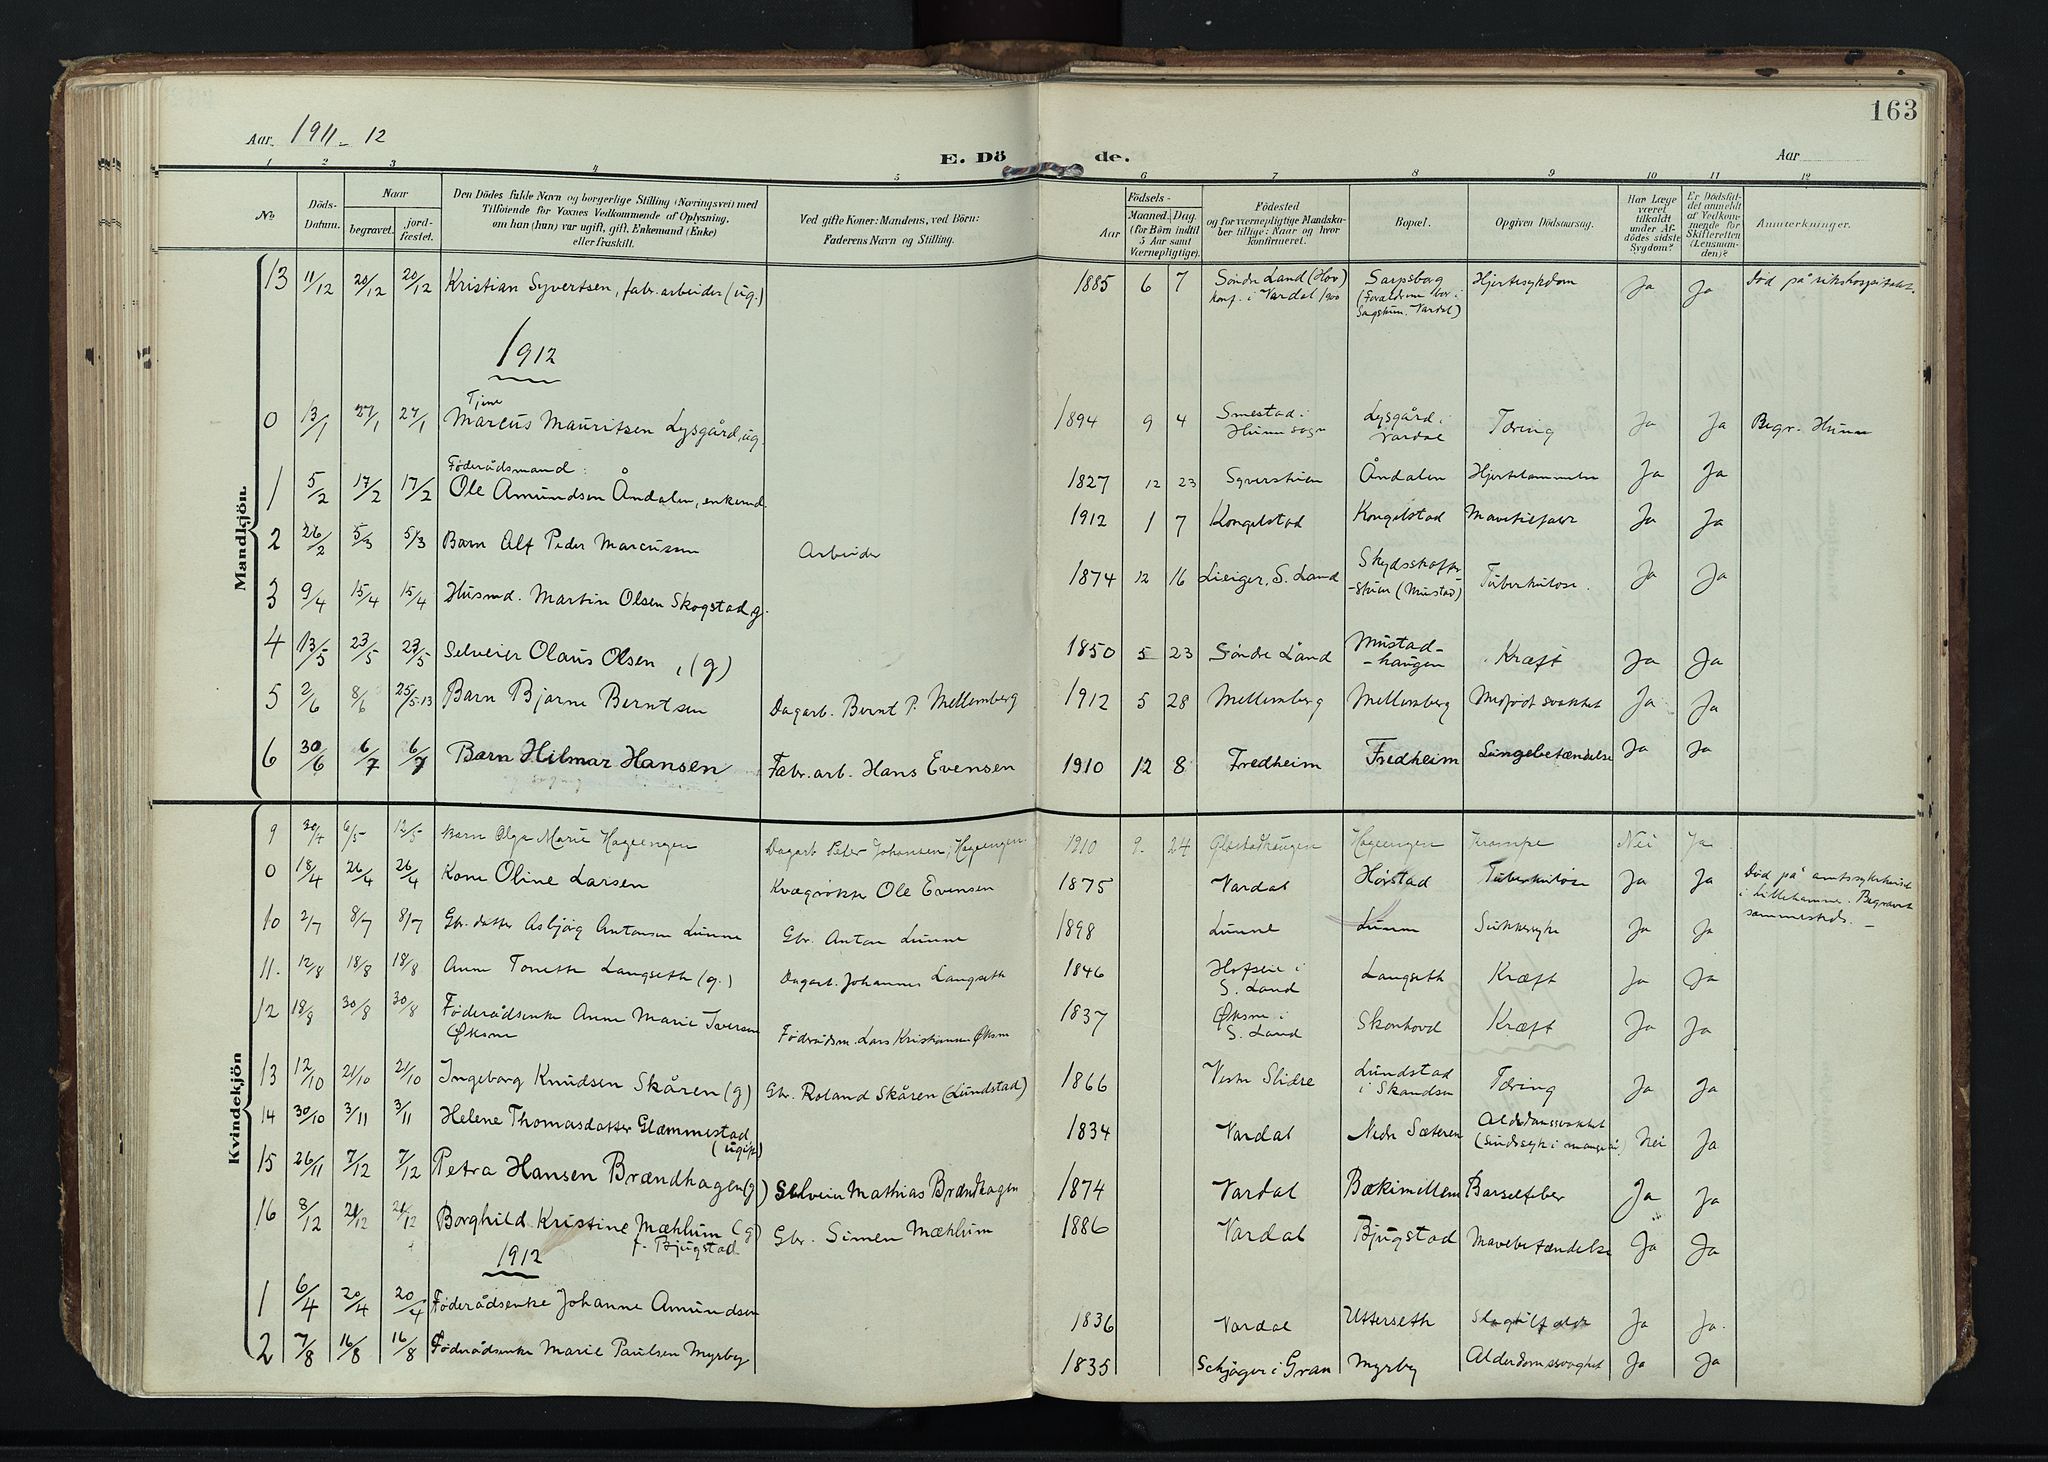 163
Aar 1911-12
E. Döde.
Aar
1 2 3 4 5 6 7 8 9 10 11 12
No
Döds-Datum.
Naar
begravet.
jord-fæstet.
Den Dödes fulde Navn og borgerlige Stilling (Næringsvei) med
Tilföiende for Voxnes Vedkommende af Oplysning,
om han (hun) var ugift, gift, Enkemand (Enke)
eller fraskilt.
Ved gifte Koner: Mandens, ved Börn:
Faderens Navn og Stilling.
Födsels-
Aar
Maaned.
Dag.
(for Börn indtil
5 Aar samt
Værnepligtige).
Födested
og for værnepligtige Mandska-
ber tillige: Naar og hvor
konfirmeret.
Bopæl.
Opgiven Dödsaarsag.
Har Læge
været
tilkaldt
under Af-
dödes sidste
Sygdom?
Er Dödsfal-
det anmeldt
af Vedkom-
mende for
Skifteretten
(Lensman-
den)?
Anmerkninger.
Mandkjön.
13 11/12 20/12 20/12 Kristian Syvertsen, fabr.arbeider (ug.) 1885 6 7 Søndre Land (Hov) konf. i Vardal 1900 Sarpsborg (Forældrene bor i Vardal) Hjertesykdom Ja Ja Død på rikshospitalet.
1912
0 13/1 27/1 27/1 Tjener Marcus Mauritsen Lysgård, ug. 1894 9 4 Smestad i Hunn sogn Lysgård i Vardal Tæring Ja Ja Begr. Hunn
1 5/2 17/2 17/2 Føderådsmand: Ole Amundsen Åndalen, enkemd. 1827 12 23 Syverstuen Åndalen Hjertelammelse Ja Ja
2 26/2 5/3 5/3 Barn Alf Peder Marcussen Arbeider 1912 1 7 Kongelstad Kongelstad Mavetilfælde Ja Ja
3 9/4 15/4 15/4 Husmd. Martin Olsen Skogstad, g. 1874 12 16 S. Land (Mustad) Tuberkulose. Ja Ja
4 13/5 23/5 23/5 Selveier Olaus Olsen, (g) 1850 5 23 Søndre Land Mustad-haugen Kræft Ja Ja
5 2/6 8/6 25/5-13 Barn Bjarne Berntsen Dagarb. Bernt P. Mellemberg 1912 5 28 Mellemberg Mellemberg Medfødt svakhet Ja Ja
6 30/6 6/7 6/7 Barn Hilmar Hansen Fabr.arb. Hans Evensen 1910 12 8 Fredheim Fredheim Lungebetændelse Ja Ja
Kvindekjön
9 30/4 6/5 12/5 Barn Olga Marie Hageengen Dagarb. Peter Johansen, Hageengen 1910 9. 24 Gløstadhaugen Hageengen Krampe Nei Ja
0 18/4 26/4 26/4 Kone Oline Larsen Kvægrøkter Ole Evensen 1875 Vardal Hørstad Tuberkulose Ja Ja Død på amtssykehuset i Lillehammer. Begravet sammesteds.
10 2/7 8/7 8/7 Gbr. datter Asbjørg Antonsen Lunne Gbr. Anton Lunne 1898 Lunne Lunne Sukkersyke Ja Ja
11. 12/8 18/8 18/8 Anne Tonette Langseth (g.) Dagarb. Johannes Langseth 1846 Hofseie i S. Land Langseth Kræft Ja Ja
12 18/8 30/8 30/8 Føderådsenke Anne Marie Iversen Øksne Føderådsm. Lars Kristiansen Øksne 1837 Øksne i S. Land Skonhovd Kræft Ja Ja
13 12/10 21/10 21/10 Ingeborg Knudsen Skåren (g) Gbr. Roland Skåren (Lundstad) 1866 Vestre Slidre Lundstad i Skandsen Tæring Ja Ja
14 30/10 3/11 3/11 Helene Thomasdatter Glæmmestad (ugift) 1834 Vardal Nedre Sæteren Alderdomssvakhet (Sindssyk i mange år) Nei Ja
15 26/11 7/12 7/12 Petra Hansen Brændhagen (g) Selveier Mathias Brændhagen 1874 Vardal Bækimellem Barselfeber Ja Ja
16 8/12 21/12 21/12 Borghild Kristine Mæhlum (g) f. Bjugstad Gbr. Simen Mæhlum 1886 Vardal Bjugstad Mavebetændelse Ja Ja
1912
1 6/4 20/4 20/4 Føderådsenke Johanne Amundsen 1836 Vardal Utterseth Slagtilfælde Ja Ja.
2 7/8 16/8 16/8 Føderådsenke Marie Paulsen Myrby 1835 Schjager i Gran Myrby Alderdomssvaghet Ja Ja